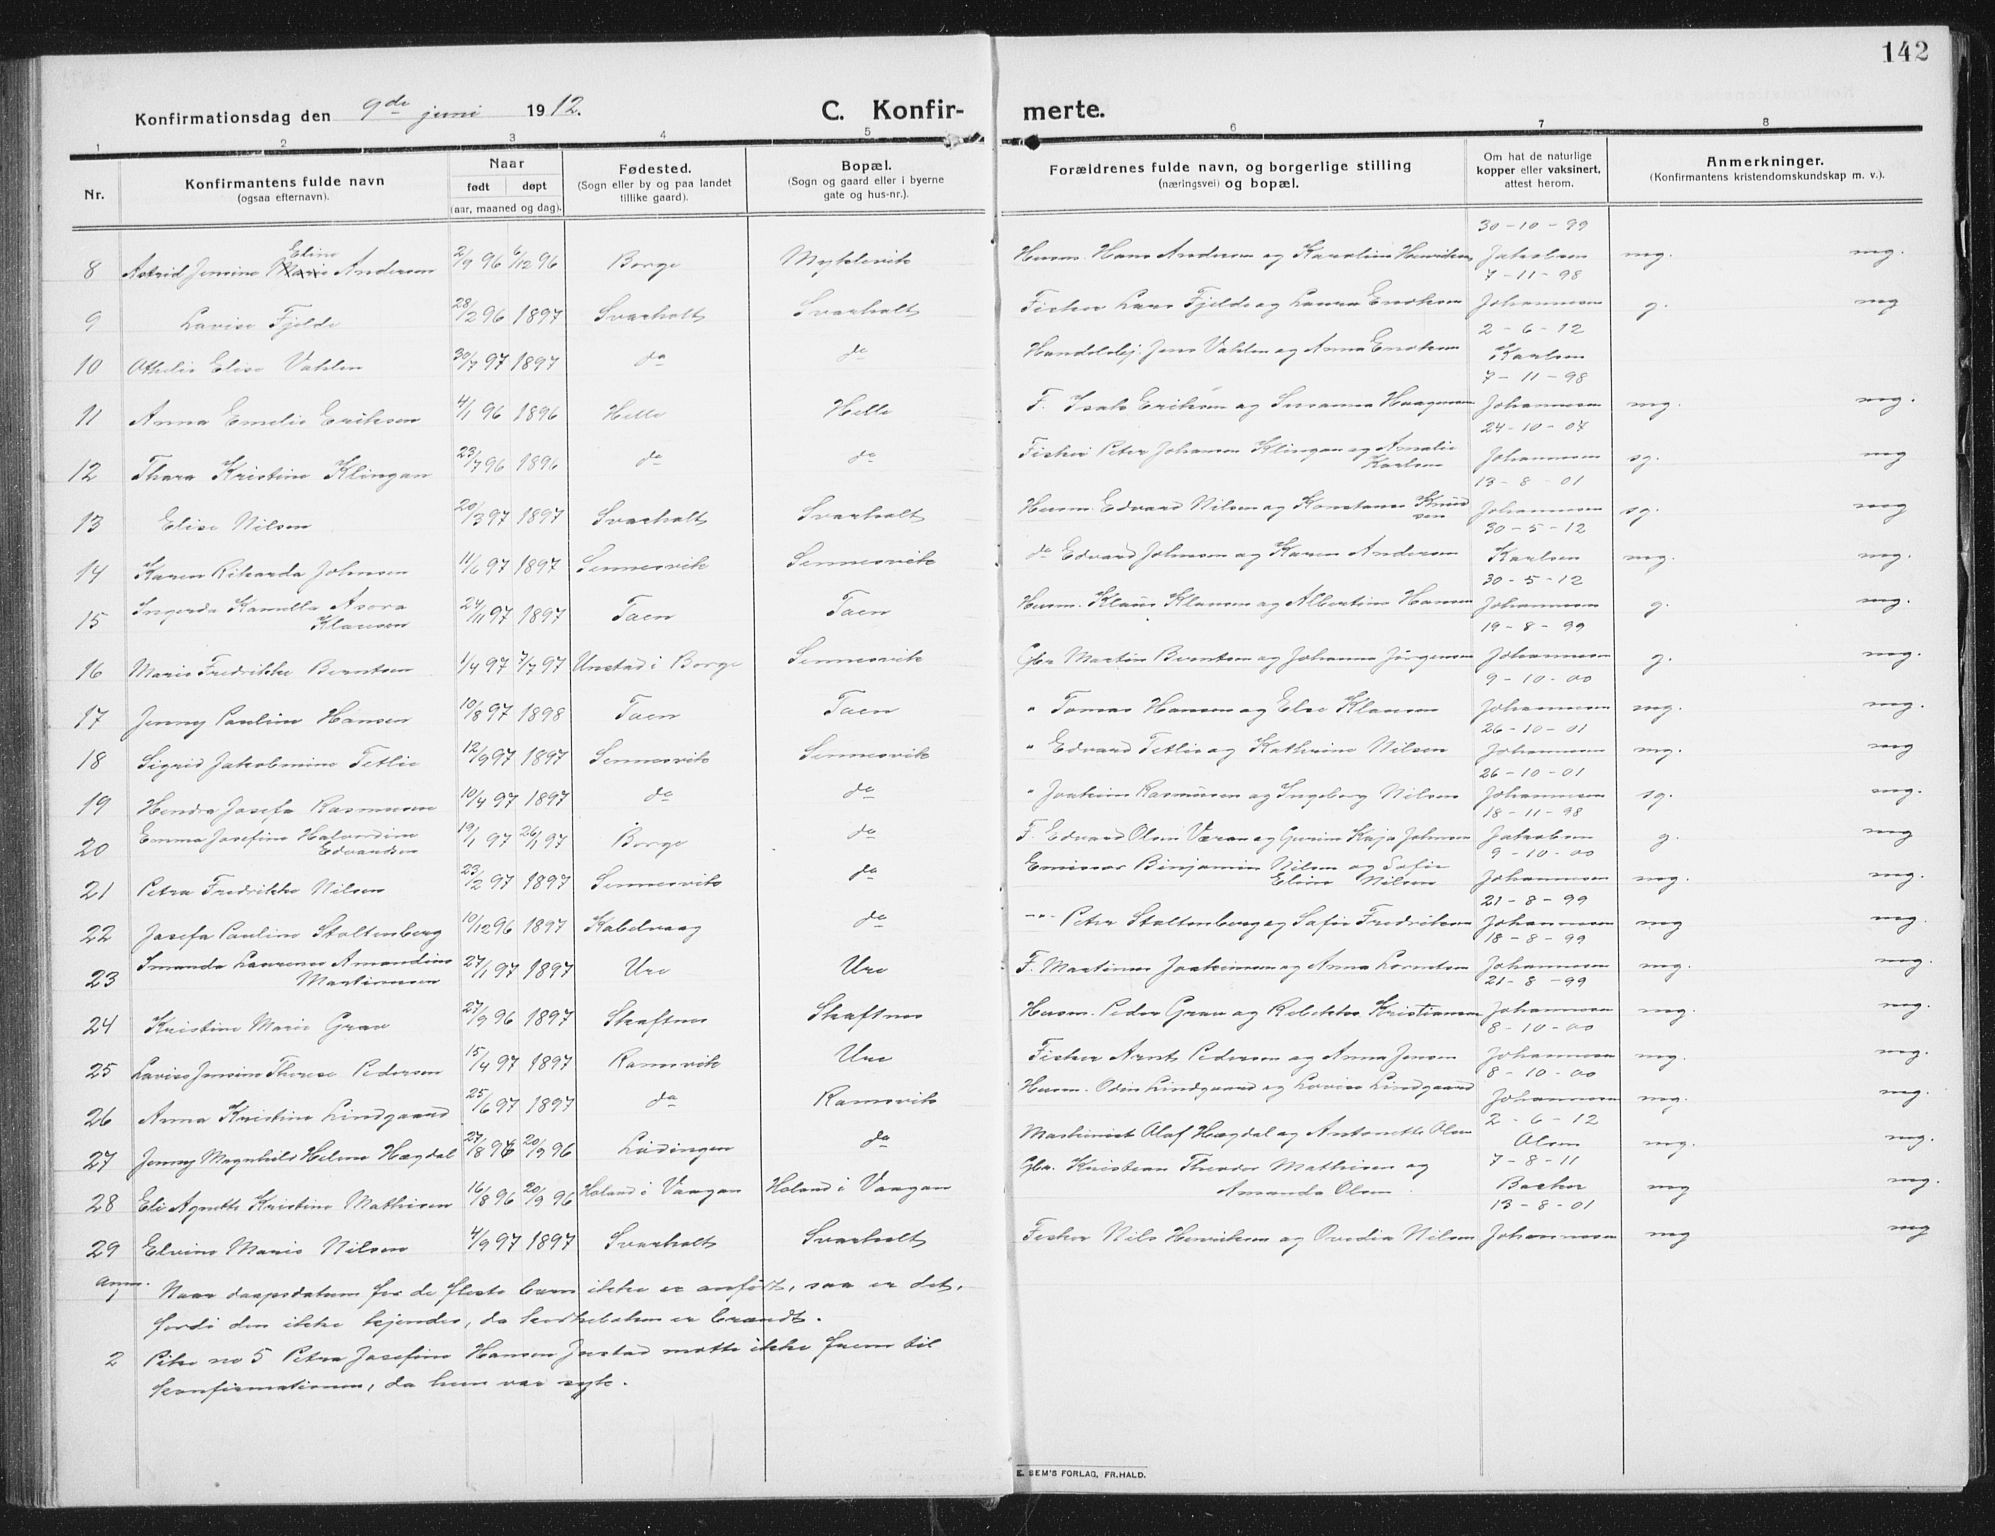 142
Konfirmationsdag den 9de juni 1912. C. Konfirmerte.
1 2 3 4 5 6 7 8
Nr. Konfirmantens fulde navn (ogsaa efternavn). Naar født døpt (aar, maaned og dag). Fødested. (Sogn eller by og paa landet tillike gaard). Bopæl. (Sogn og gaard eller i byerne gate og hus-nr.). Forældrenes fulde navn, og borgerlige stilling (næringsvei) og bopæl. Om hat de naturlige kopper eller vaksinert, attest herom. Anmerkninger. (Konfirmantens kristendomskundskap m. v.).
8 Astrid Jensine Marie Eline Andersen 2/9 96 6/12 96 Borge Myklevik Husm. Hans Andersen og Karoline 30-10-99 Jakobsen mg. mg.
9 Lovise Fjelde 28/2 96 1897 Svarholt Svarholt Fisker Lars Fjelde og Laura Enoksen 7-11-98 Johannesen g. mg
10 Othelie Elise Vahlen 30/7 97 1897 do do Handelsbej. Jens Vahlen og Anna Enoksen 2-6-12 Karlsen
11 Anna Emelie Eriksen 4/1 96 1896 Helle Helle F. Isak Eriksen og Susanna Haagensen 7-11-98 Johannesen mg. mg.
12 Thara Kristine Klingan 23/7 96 1896 do do Fisker Peter Johansen Klingan og Amalie Karlsen 24-10-07 Johannesen sg. mg
13 Elise Nilsen 20/3 97 1897 Svarholt Svarholt Husm. Edvard Nilsen og Konstanse Knudsen 13-8-01 Johannesen sg. mg
14 Karen Rikarda Johnsen 11/6 97 1897 Sennesvik Sennesvik do Edvard Johnsen og Karen Andersen 30-5-12 Karlsen mg. mg.
15 Ingerda Kamella Asora Klausen 24/11 97 1897 Taen Taen Husm. Klaus Klausen og Albertine Hansen 30-5-12 Johannesen g. mg.
16 Marie Fredrikke Berntsen 1/4 97 7/7 97 Unstad i Borge Sennesvik Gbr Martin Berntsen og Johanna Jörgensen 19-8-99 Johannesen g. mg.
17 Jenny Pauline Hansen 10/8 97 1898 Taen Taen " Tomas Hansen og Else Klausen 9-10-00 Johannesen mg. mg.
18 Sigrid Jakobmine Tetlie 12/9 97 1897 Sennesvik Sennesvik " Edvard Tetlie og Kathrine Nilsen 26-10-01 Johannesen mg. mg
19 Hendra Josefa Rasmussen 10/4 97 1897 do do " Joakim Rasmussen og Ingeborg Nilsen 26-10-01 Johannesen sg. mg.
20 Emma Josefine Halvordine Edvardsen 19/1 97 26/1 97 Borge do F. Edvard Olsen Væran og Gurine Kaja Johnsen 18-11-98 Jakobsen g. mg
21 Petra Fredrikke Nilsen 23/2 97 1897 Sennesvik do Emissær Binjamin Nilsen og Sofie Eline Nilsen 9-10-00 Johannesen mg. mg.
22 Josefa Pauline Stoltenberg 10/12 96 1897 Kabelvaag do -"- Peter Stoltenberg og Sofie Fredriksen 21-8-99 Johannesen mg mg.
23 Imanda Laurense Amandine Martinussen 27/1 97 1897 Ure Ure F. Martinus Joakimsen og Anna Lorntsen 18-8-99 Johannesen mg. mg.
24 Kristine Marie Grav 27/9 96 1897 Skaftnes Skaftnes Husm. Peder Grav og Rebekka Kristiansen 21-8-99 Johannesen mg. mg.
25 Lovise Jensine Therese Pedersen 15/4 97 1897 Ramsvik Ure Fisker Arnt Pedersen og Anna Jensen 8-10-00 Johannesen mg. mg.
26 Anna Kristine Lindgaard 25/6 97 1897 do Ramsvik Husm. Odin Lindgaard og Lovise Lindgaard 8-10-00 Johannesen mg. mg.
27 Jenny Magnhild Helene Hægdal 27/8 96 20/9 96 Lödingen do Maskinist Olaf Hægdal og Antonette Olsen 2-6-12 Olsen mg. mg.
28 Eli Agnette Kristine Mathisen 16/8 96 20/9 96 Holand i Vaagan Holand i Vaagan Gbr. Kristian Theodor Mathisen og Amanda Olsen 7-8-11 Backer mg mg.
29 Elvine Marie Nilsen 4/9 97 1897 Svarholt Svarholt Fisker Nils Henriksen og Ovedia Nilsen 13-8-01 Johannesen mg mg
Anm. 1 Naar daapsdatum for de fleste barn ikke er anfört, saa er det,
fordi den ikke kjendes, da kirkeboken er brandt.
2 Pike no 5 Petra Josefine Hansen Justad møtte ikke frem til
konfirmationen, da hun var syk.
E. SEM'S FORLAG, FR.HALD.